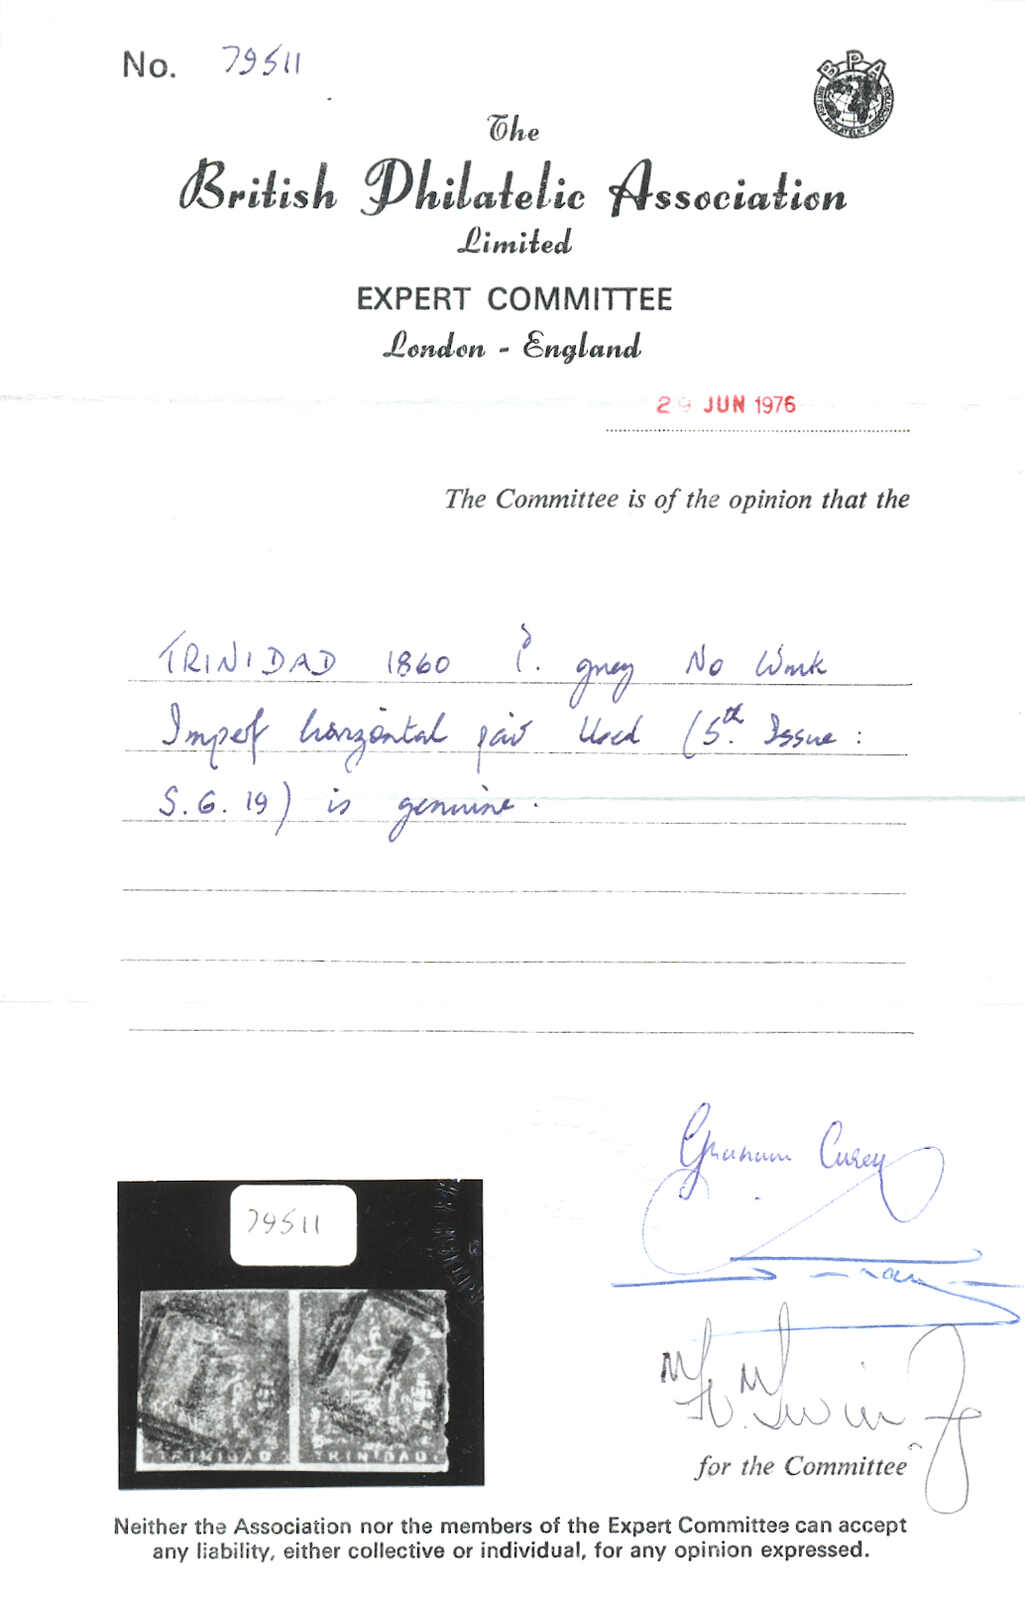 No. 79511
BPA
BRITISH PHILATELIC ASSOCIATION
The
British Philatelic Association
Limited
EXPERT COMMITTEE
London - England
29 JUN 1976
The Committee is of the opinion that the
TRINIDAD 1860 1d. grey No Wmk
Imperf horizontal pair Used (5th. Issue :
S.G. 19) is genuine.
Graham Cursey
79511
TRINIDAD TRINIDAD
for the Committee
Neither the Association nor the members of the Expert Committee can accept
any liability, either collective or individual, for any opinion expressed.